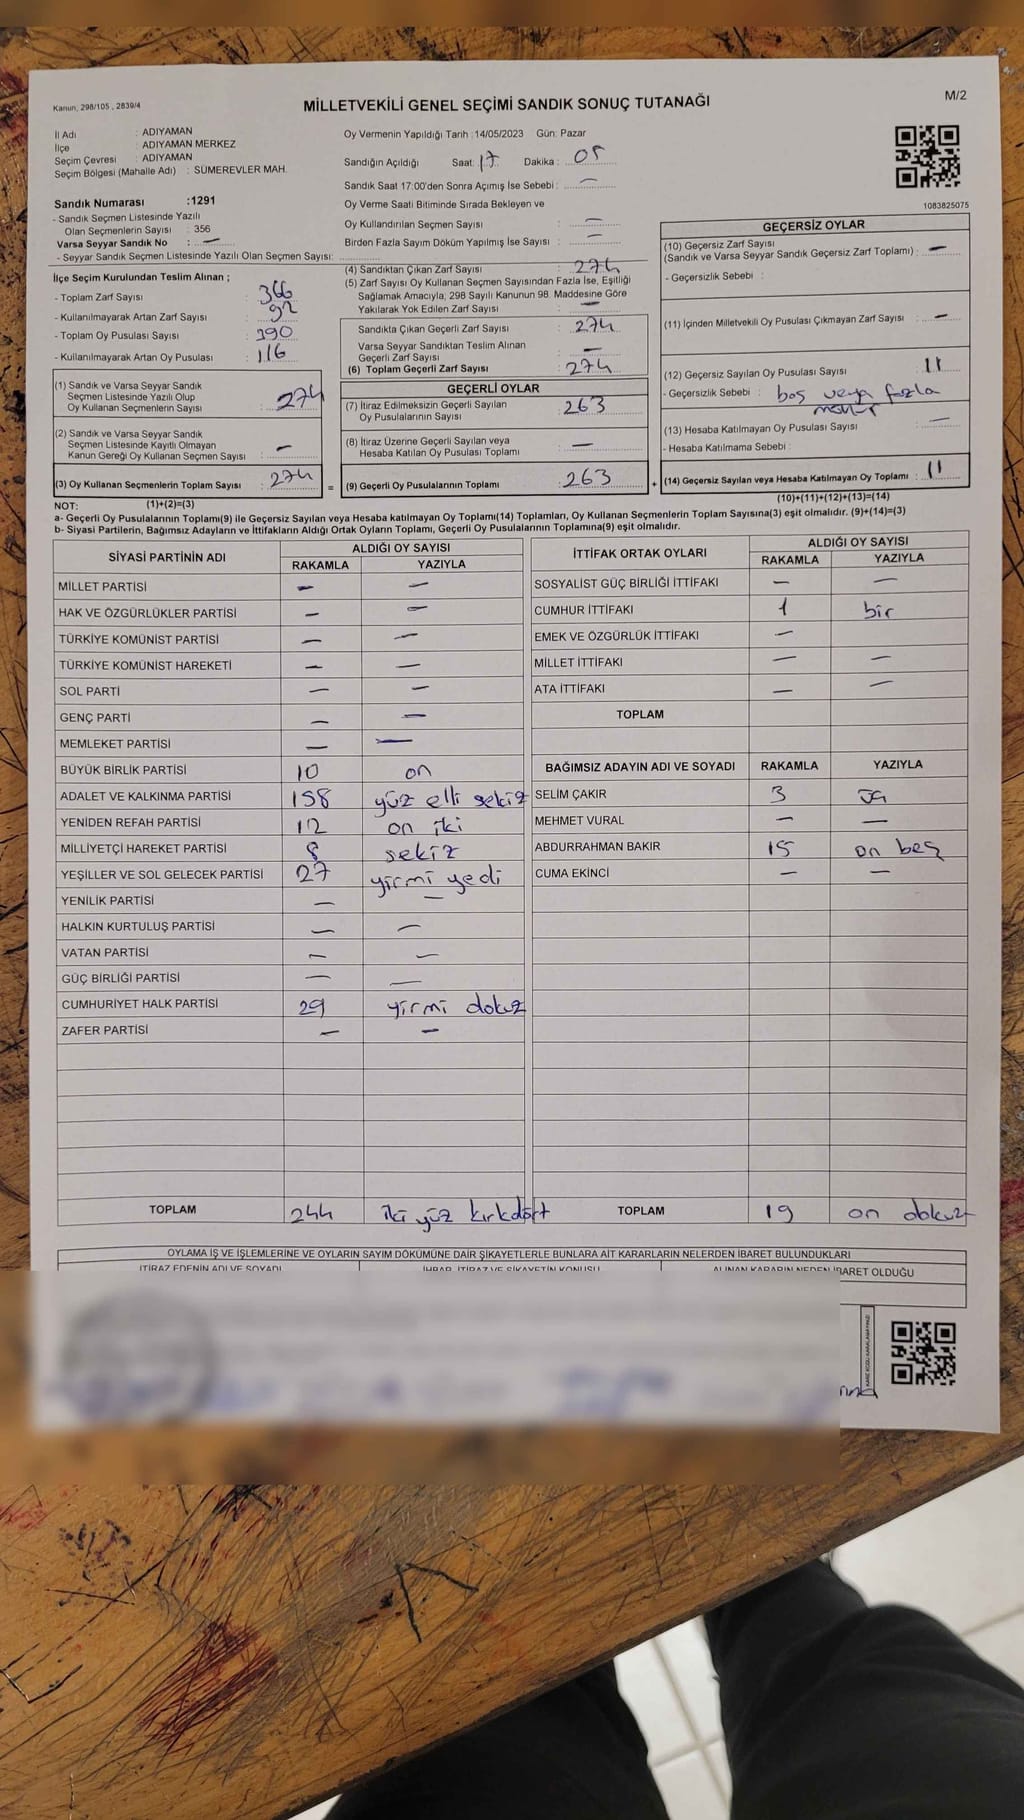 Kanun; 298/105 , 2839/4
MİLLETVEKİLİ GENEL SEÇİMİ SANDIK SONUÇ TUTANAĞI
M/2
İl Adı : ADIYAMAN
İlçe : ADIYAMAN MERKEZ
Seçim Çevresi : ADIYAMAN
Seçim Bölgesi (Mahalle Adı) : SÜMEREVLER MAH.
Sandık Numarası :1291
- Sandık Seçmen Listesinde Yazılı
Olan Seçmenlerin Sayısı : 356
Varsa Seyyar Sandık No : —
- Seyyar Sandık Seçmen Listesinde Yazılı Olan Seçmen Sayısı:
Oy Vermenin Yapıldığı Tarih :14/05/2023 Gün: Pazar
Sandığın Açıldığı Saat: 17 Dakika : 05
Sandık Saat 17:00'den Sonra Açımış İse Sebebi : —
Oy Verme Saati Bitiminde Sırada Bekleyen ve
Oy Kullandırılan Seçmen Sayısı : —
Birden Fazla Sayım Döküm Yapılmış İse Sayısı : —
1083825075
İlçe Seçim Kurulundan Teslim Alınan ;
- Toplam Zarf Sayısı : 366
- Kullanılmayarak Artan Zarf Sayısı : 92
- Toplam Oy Pusulası Sayısı : 390
- Kullanılmayarak Artan Oy Pusulası : 116
(1) Sandık ve Varsa Seyyar Sandık
Seçmen Listesinde Yazılı Olup
Oy Kullanan Seçmenlerin Sayısı : 274
(2) Sandık ve Varsa Seyyar Sandık
Seçmen Listesinde Kayıtlı Olmayan
Kanun Gereği Oy Kullanan Seçmen Sayısı : —
(3) Oy Kullanan Seçmenlerin Toplam Sayısı : 274 =
(4) Sandıktan Çıkan Zarf Sayısı : 274
(5) Zarf Sayısı Oy Kullanan Seçmen Sayısından Fazla İse, Eşitliği
Sağlamak Amacıyla, 298 Sayılı Kanunun 98. Maddesine Göre
Yakılarak Yok Edilen Zarf Sayısı : —
Sandıkta Çıkan Geçerli Zarf Sayısı : 274
Varsa Seyyar Sandıktan Teslim Alınan
Geçerli Zarf Sayısı : —
(6) Toplam Geçerli Zarf Sayısı : 274
GEÇERLİ OYLAR
(7) İtiraz Edilmeksizin Geçerli Sayılan
Oy Pusulalarının Sayısı : 263
(8) İtiraz Üzerine Geçerli Sayılan veya
Hesaba Katılan Oy Pusulası Toplamı : —
(9) Geçerli Oy Pusulalarının Toplamı : 263 +
GEÇERSİZ OYLAR
(10) Geçersiz Zarf Sayısı
(Sandık ve Varsa Seyyar Sandık Geçersiz Zarf Toplamı) : —
- Geçersizlik Sebebi :
(11) İçinden Milletvekili Oy Pusulası Çıkmayan Zarf Sayısı : —
(12) Geçersiz Sayılan Oy Pusulası Sayısı : 11
- Geçersizlik Sebebi : boş veya fazla
mühür
(13) Hesaba Katılmayan Oy Pusulası Sayısı : —
- Hesaba Katılmama Sebebi :
(14) Geçersiz Sayılan veya Hesaba Katılmayan Oy Toplamı : 11
NOT: (1)+(2)=(3) (10)+(11)+(12)+(13)=(14)
a- Geçerli Oy Pusulalarının Toplamı(9) ile Geçersiz Sayılan veya Hesaba katılmayan Oy Toplamı(14) Toplamları, Oy Kullanan Seçmenlerin Toplam Sayısına(3) eşit olmalıdır. (9)+(14)=(3)
b- Siyasi Partilerin, Bağımsız Adayların ve İttifakların Aldığı Ortak Oyların Toplamı, Geçerli Oy Pusulalarının Toplamına(9) eşit olmalıdır.
SİYASİ PARTİNİN ADI ALDIĞI OY SAYISI
RAKAMLA YAZIYLA
MİLLET PARTİSİ — —
HAK VE ÖZGÜRLÜKLER PARTİSİ — —
TÜRKİYE KOMÜNİST PARTİSİ — —
TÜRKİYE KOMÜNİST HAREKETİ — —
SOL PARTİ — —
GENÇ PARTİ — —
MEMLEKET PARTİSİ — —
BÜYÜK BİRLİK PARTİSİ 10 on
ADALET VE KALKINMA PARTİSİ 158 yüz elli sekiz
YENİDEN REFAH PARTİSİ 12 on iki
MİLLİYETÇİ HAREKET PARTİSİ 8 sekiz
YEŞİLLER VE SOL GELECEK PARTİSİ 27 yirmi yedi
YENİLİK PARTİSİ — —
HALKIN KURTULUŞ PARTİSİ — —
VATAN PARTİSİ — —
GÜÇ BİRLİĞİ PARTİSİ — —
CUMHURİYET HALK PARTİSİ 29 yirmi dokuz
ZAFER PARTİSİ — —
TOPLAM 244 iki yüz kırkdört
İTTİFAK ORTAK OYLARI ALDIĞI OY SAYISI
RAKAMLA YAZIYLA
SOSYALİST GÜÇ BİRLİĞİ İTTİFAKI — —
CUMHUR İTTİFAKI 1 bir
EMEK VE ÖZGÜRLÜK İTTİFAKI —
MİLLET İTTİFAKI — —
ATA İTTİFAKI — —
TOPLAM
BAĞIMSIZ ADAYIN ADI VE SOYADI RAKAMLA YAZIYLA
SELİM ÇAKIR 3 üç
MEHMET VURAL — —
ABDURRAHMAN BAKIR 15 on beş
CUMA EKİNCİ — —
TOPLAM 19 on dokuz
OYLAMA İŞ VE İŞLEMLERİNE VE OYLARIN SAYIM DÖKÜMÜNE DAİR ŞİKAYETLERLE BUNLARA AİT KARARLARIN NELERDEN İBARET BULUNDUKLARI
İTİRAZ EDENİN ADI VE SOYADI İHBAR, İTİRAZ VE ŞİKAYETİN KONUSU ALINAN KARARIN NEDEN İBARET OLDUĞU